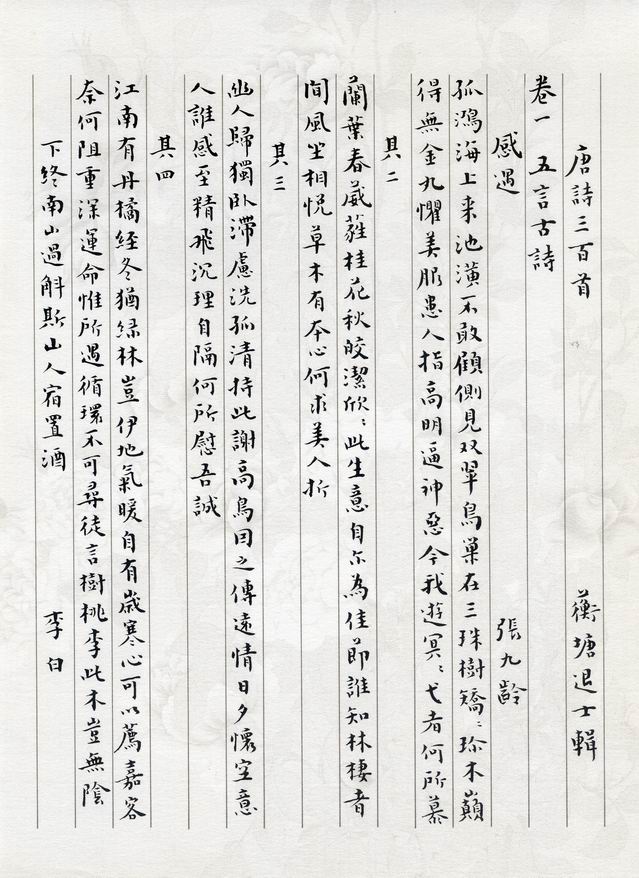 唐詩三百首 蘅塘退士輯
卷一 五言古詩
感遇 張九齡
孤鴻海上來池潢不敢顧側見双翠鳥巢在三珠樹矯〻珍木巔
得無金丸懼美服患人指高明逼神惡今我遊冥〻弋者何所慕
其二
蘭葉春葳蕤桂花秋皎潔欣〻此生意自尔為佳節誰知林棲者
聞風坐相悅草木有本心何求美人折
其三
幽人歸獨卧滯慮洗孤清持此謝高鳥因之傳遠情日夕懷空意
人誰感至精飛沉理自隔何所慰吾誠
其四
江南有丹橘經冬猶緑林豈伊地氣暖自有歲寒心可以薦嘉客
奈何阻重深運命惟所遇循環不可尋徒言樹桃李此木豈無陰
下終南山過斛斯山人宿置酒 李白